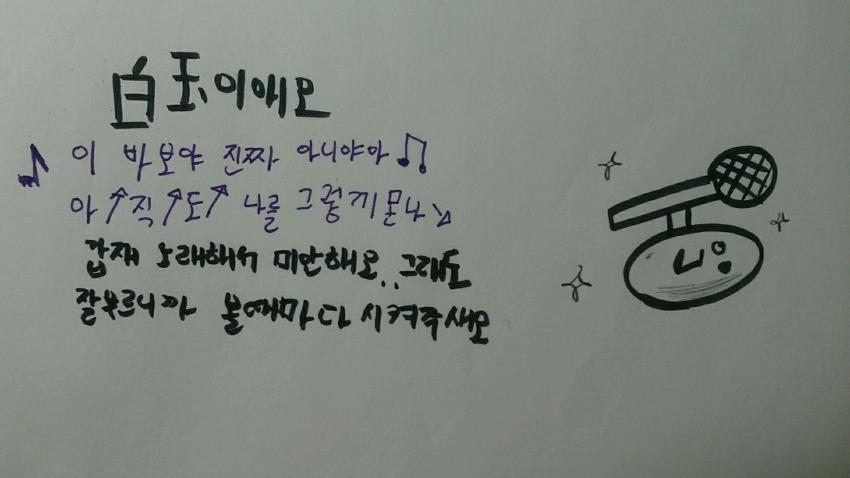 白玉이애오
이 바보야 진짜 아니야아
아↗직↗도↗ 나를 그렇게 몰라↘
갑재 노래해서 미안해오.. 그래도
잘부르니까 볼때마다 시켜주새오